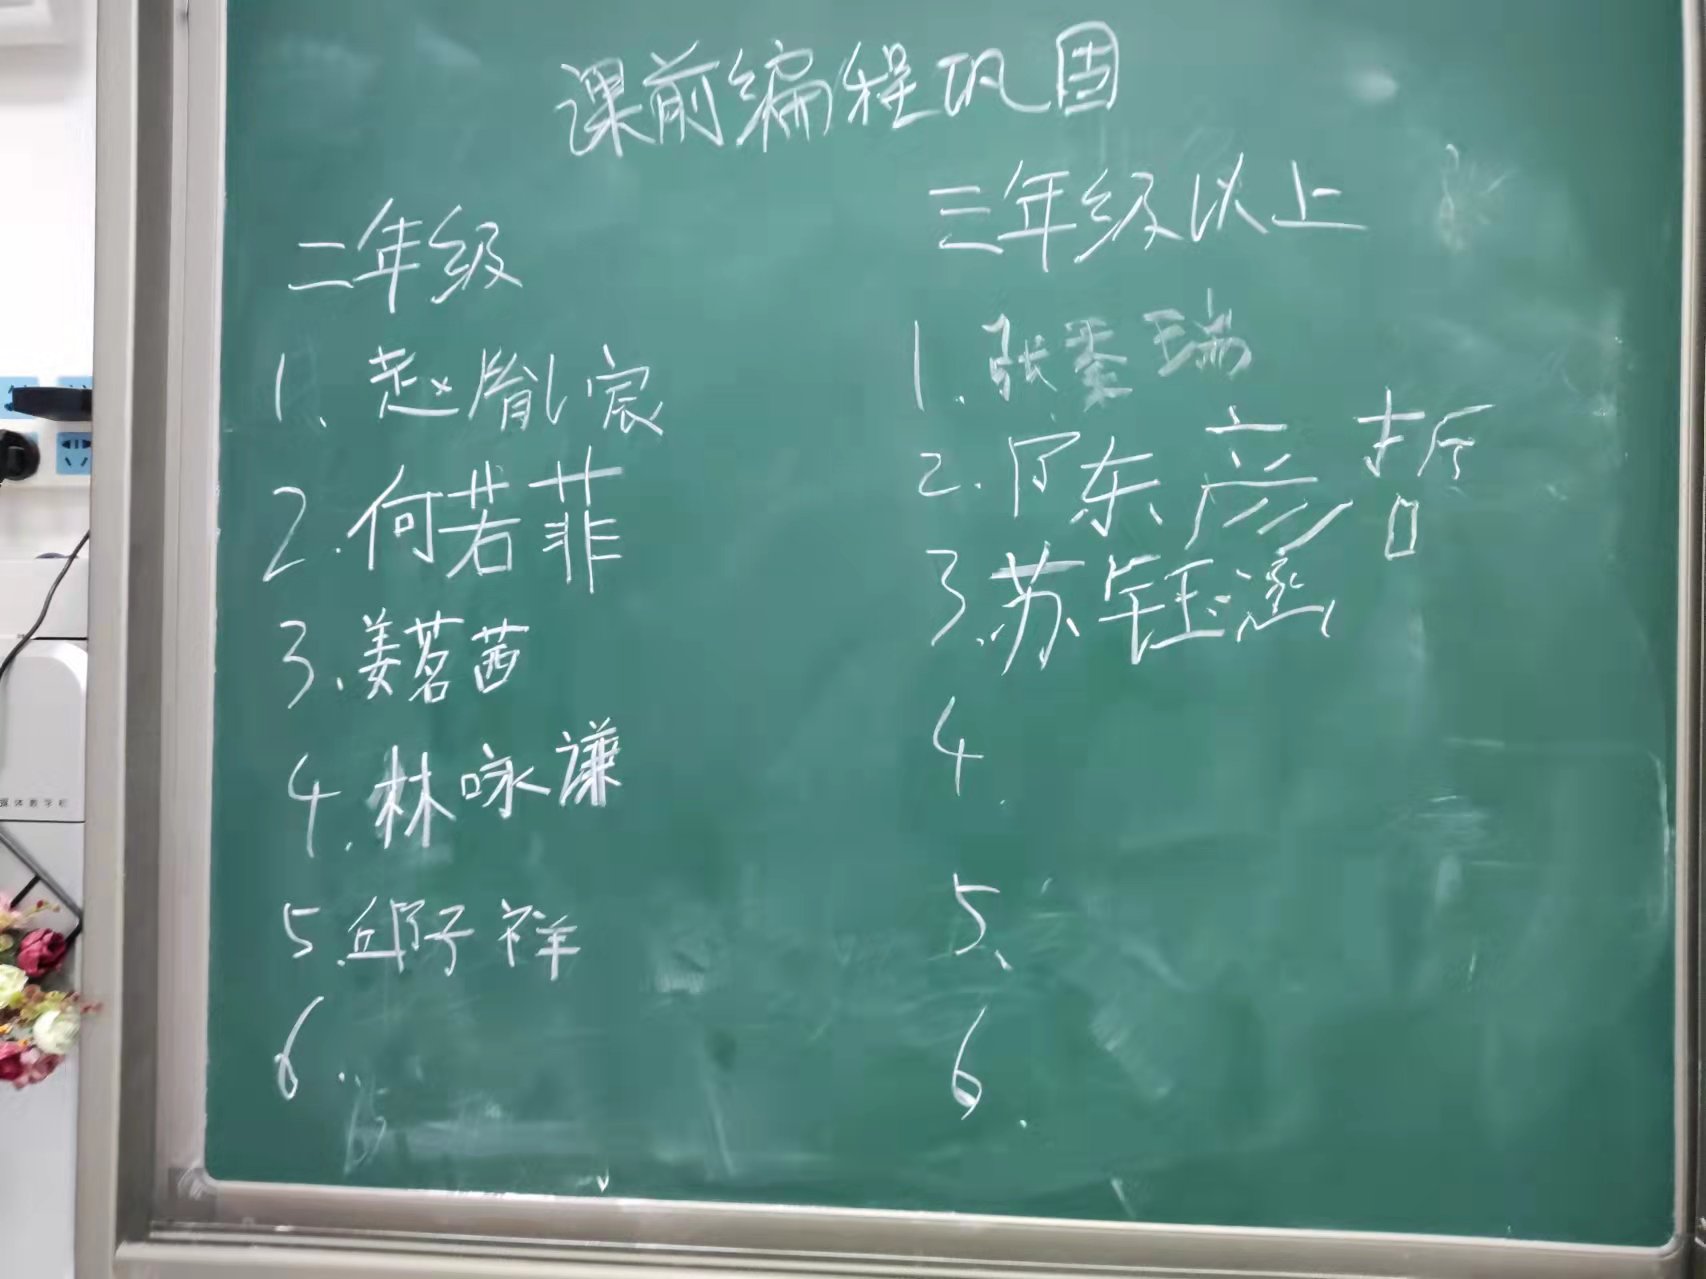 课前编程巩固
二年级
1、赵胤宸
2.何若菲
3.姜茗茜
4.林咏谦
5.邱子祥
6.
三年级以上
1.张奎瑞
2.陈彦哲
3.苏钰涵
4.
5、
6.
媒体教学栏